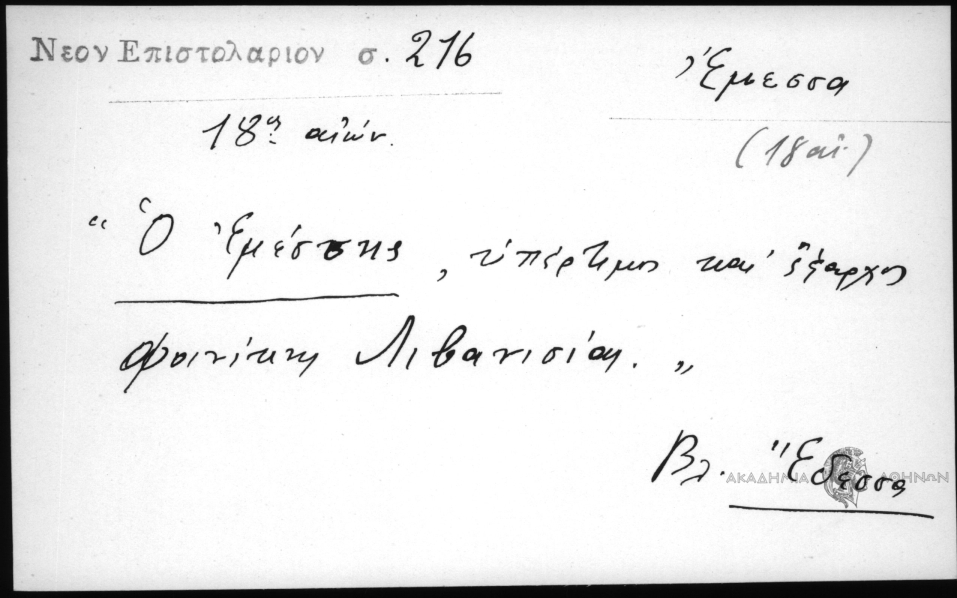 Νεον Επιστολαριον σ. 216
Ἔμεσσα
18η αἰών.
(18 αἰ.)
“ Ὁ Ἐμέσσης, ὑπέρτιμος καὶ ἔξαρχος
Φοινίκης Λιβανισίας. „
Βλ. Ἔδεσσα
ΑΚΑΔΗΜΙΑ ΑΘΗΝΩΝ